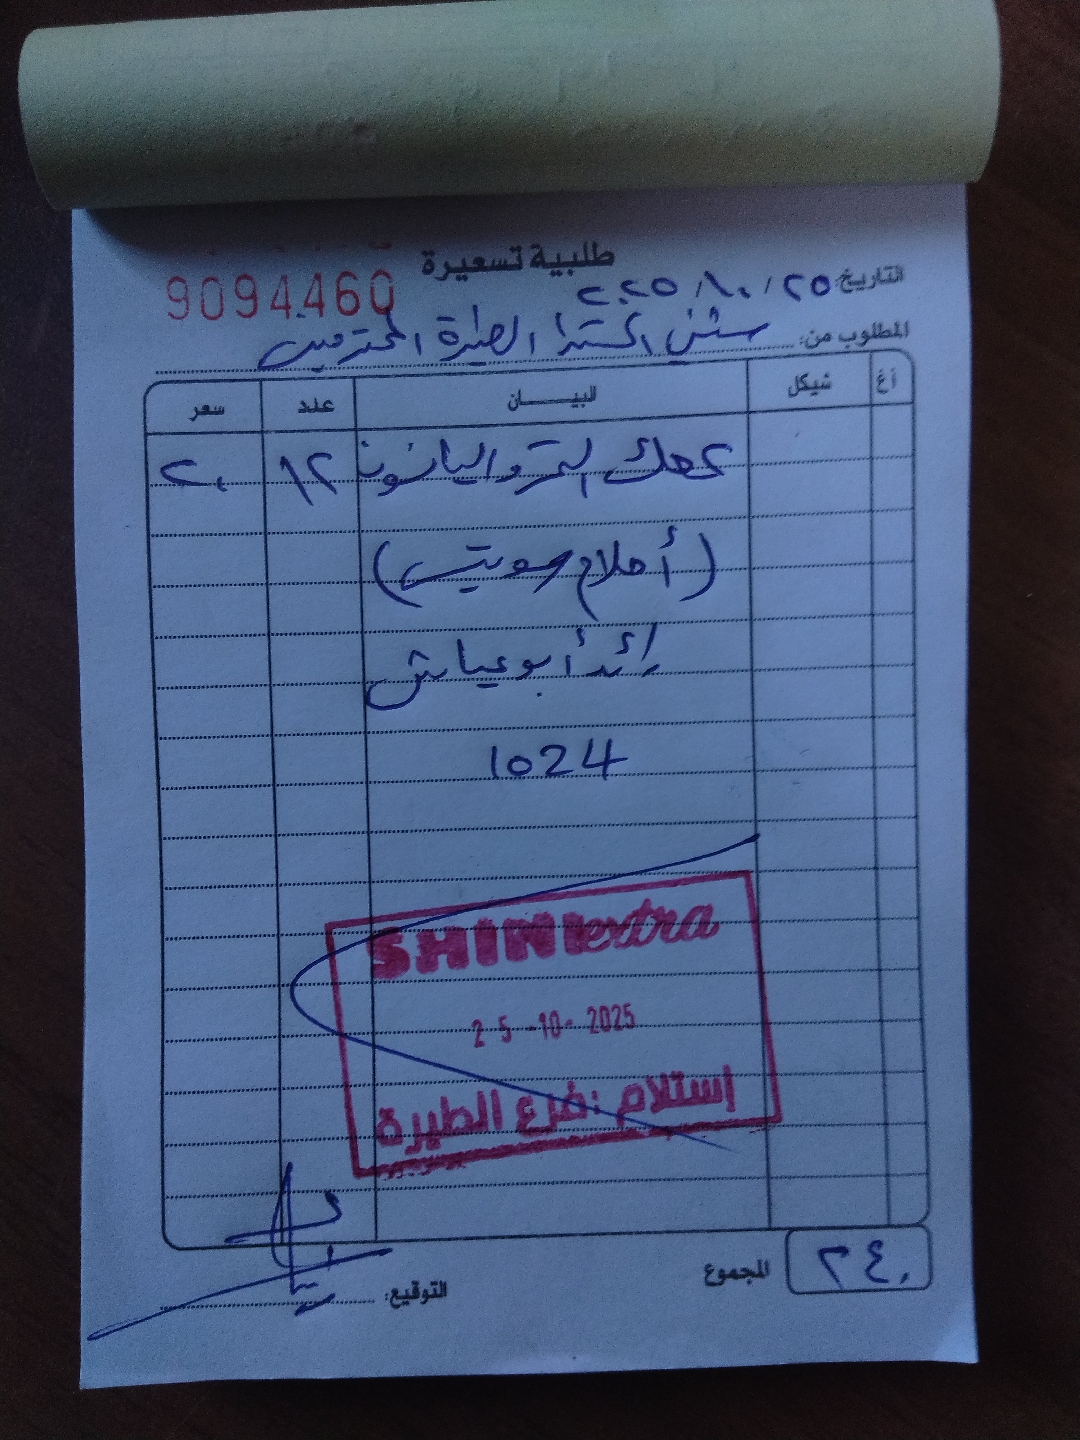 طلبية تسعيرة
9094460
التاريخ: ٢٥ / ١٠ / ٢٠٢٥
المطلوب من: شيني اكسترا الطيرة المحترمين
أغ شيكل البيـــــــان عدد سعر
كعك التمر واليانسون ١٢ ٢٠
(أحلام سويتس)
رائد أبو عياش
1024
SHINI extra
25-10-2025
إستلام :فرع الطيرة
المجموع ٢٤٠
التوقيع: